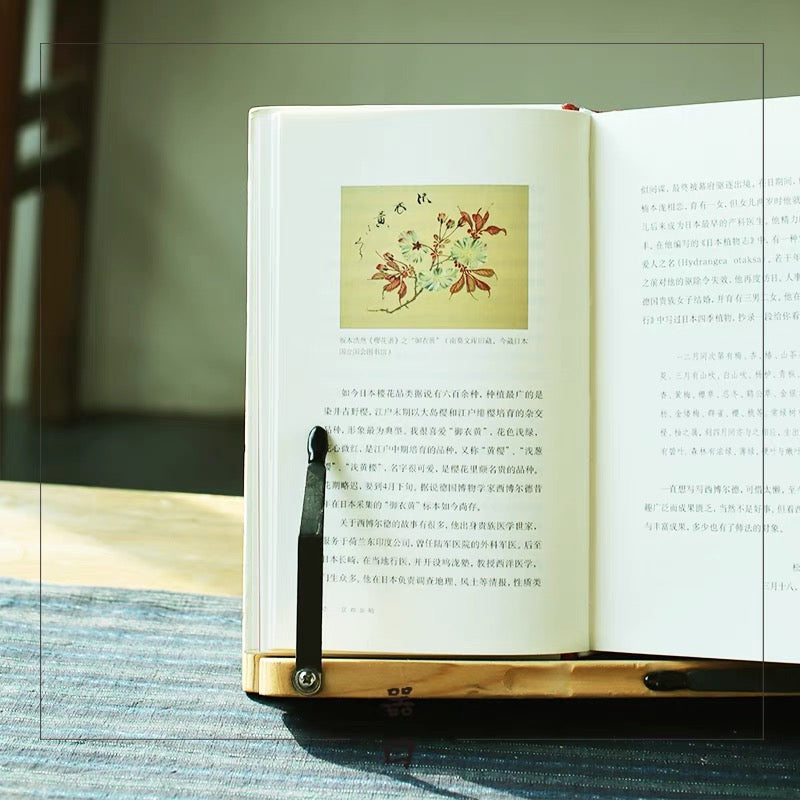 黄
衣
坂本浩然《樱花谱》之“御衣黄”（南葵文库旧藏，今藏日本
国立国会图书馆）
如今日本樱花品类据说有六百余种，种植最广的是
染井吉野樱，江户末期以大岛樱和江户绯樱培育的杂交
品种，形象最为典型。我很喜爱“御衣黄”，花色浅绿，
花心微红，是江户中期培育的品种，又称“黄樱”、“浅葱
樱”、“浅黄樱”，名字很可爱，是樱花里颇名贵的品种。
花期略迟，要到4月下旬。据说德国博物学家西博尔德昔
年在日本采集的“御衣黄”标本如今尚存。
关于西博尔德的故事有很多，他出身贵族医学世家，
服务于荷兰东印度公司，曾任陆军医院的外科军医。后至
日本长崎，在当地行医，并开设鸣泷塾，教授西洋医学，
门生众多。他在日本负责调查地理、风土等情报，性质类
似间谍，最终被幕府驱逐出境。在日期间，
楠本泷相恋，育有一女，但女儿两岁时他就
儿后来成为日本最早的产科医生。他精力
丰，在他编写的《日本植物志》中，有一种
爱人之名（Hydrangea otaksa）。若干年
之前对他的驱除令失效，他再度访日。人事
德国贵族女子结婚，并育有三男二女。他在
行》中写过日本四季植物，抄录一段给你看
一二月间次第有梅、杏、椿、山茶
英。三月有山吹、白山吹、
杏、黄梅、樱草、忍冬、
有碧叶，森林有浓绿、薄绿，
一直想写写西博尔德，可惜太懒，至今
趣广泛而成果匮乏，当然不是好事。但看西
与丰富成果，多少也有了师法的对象。
松
三月十八，
器